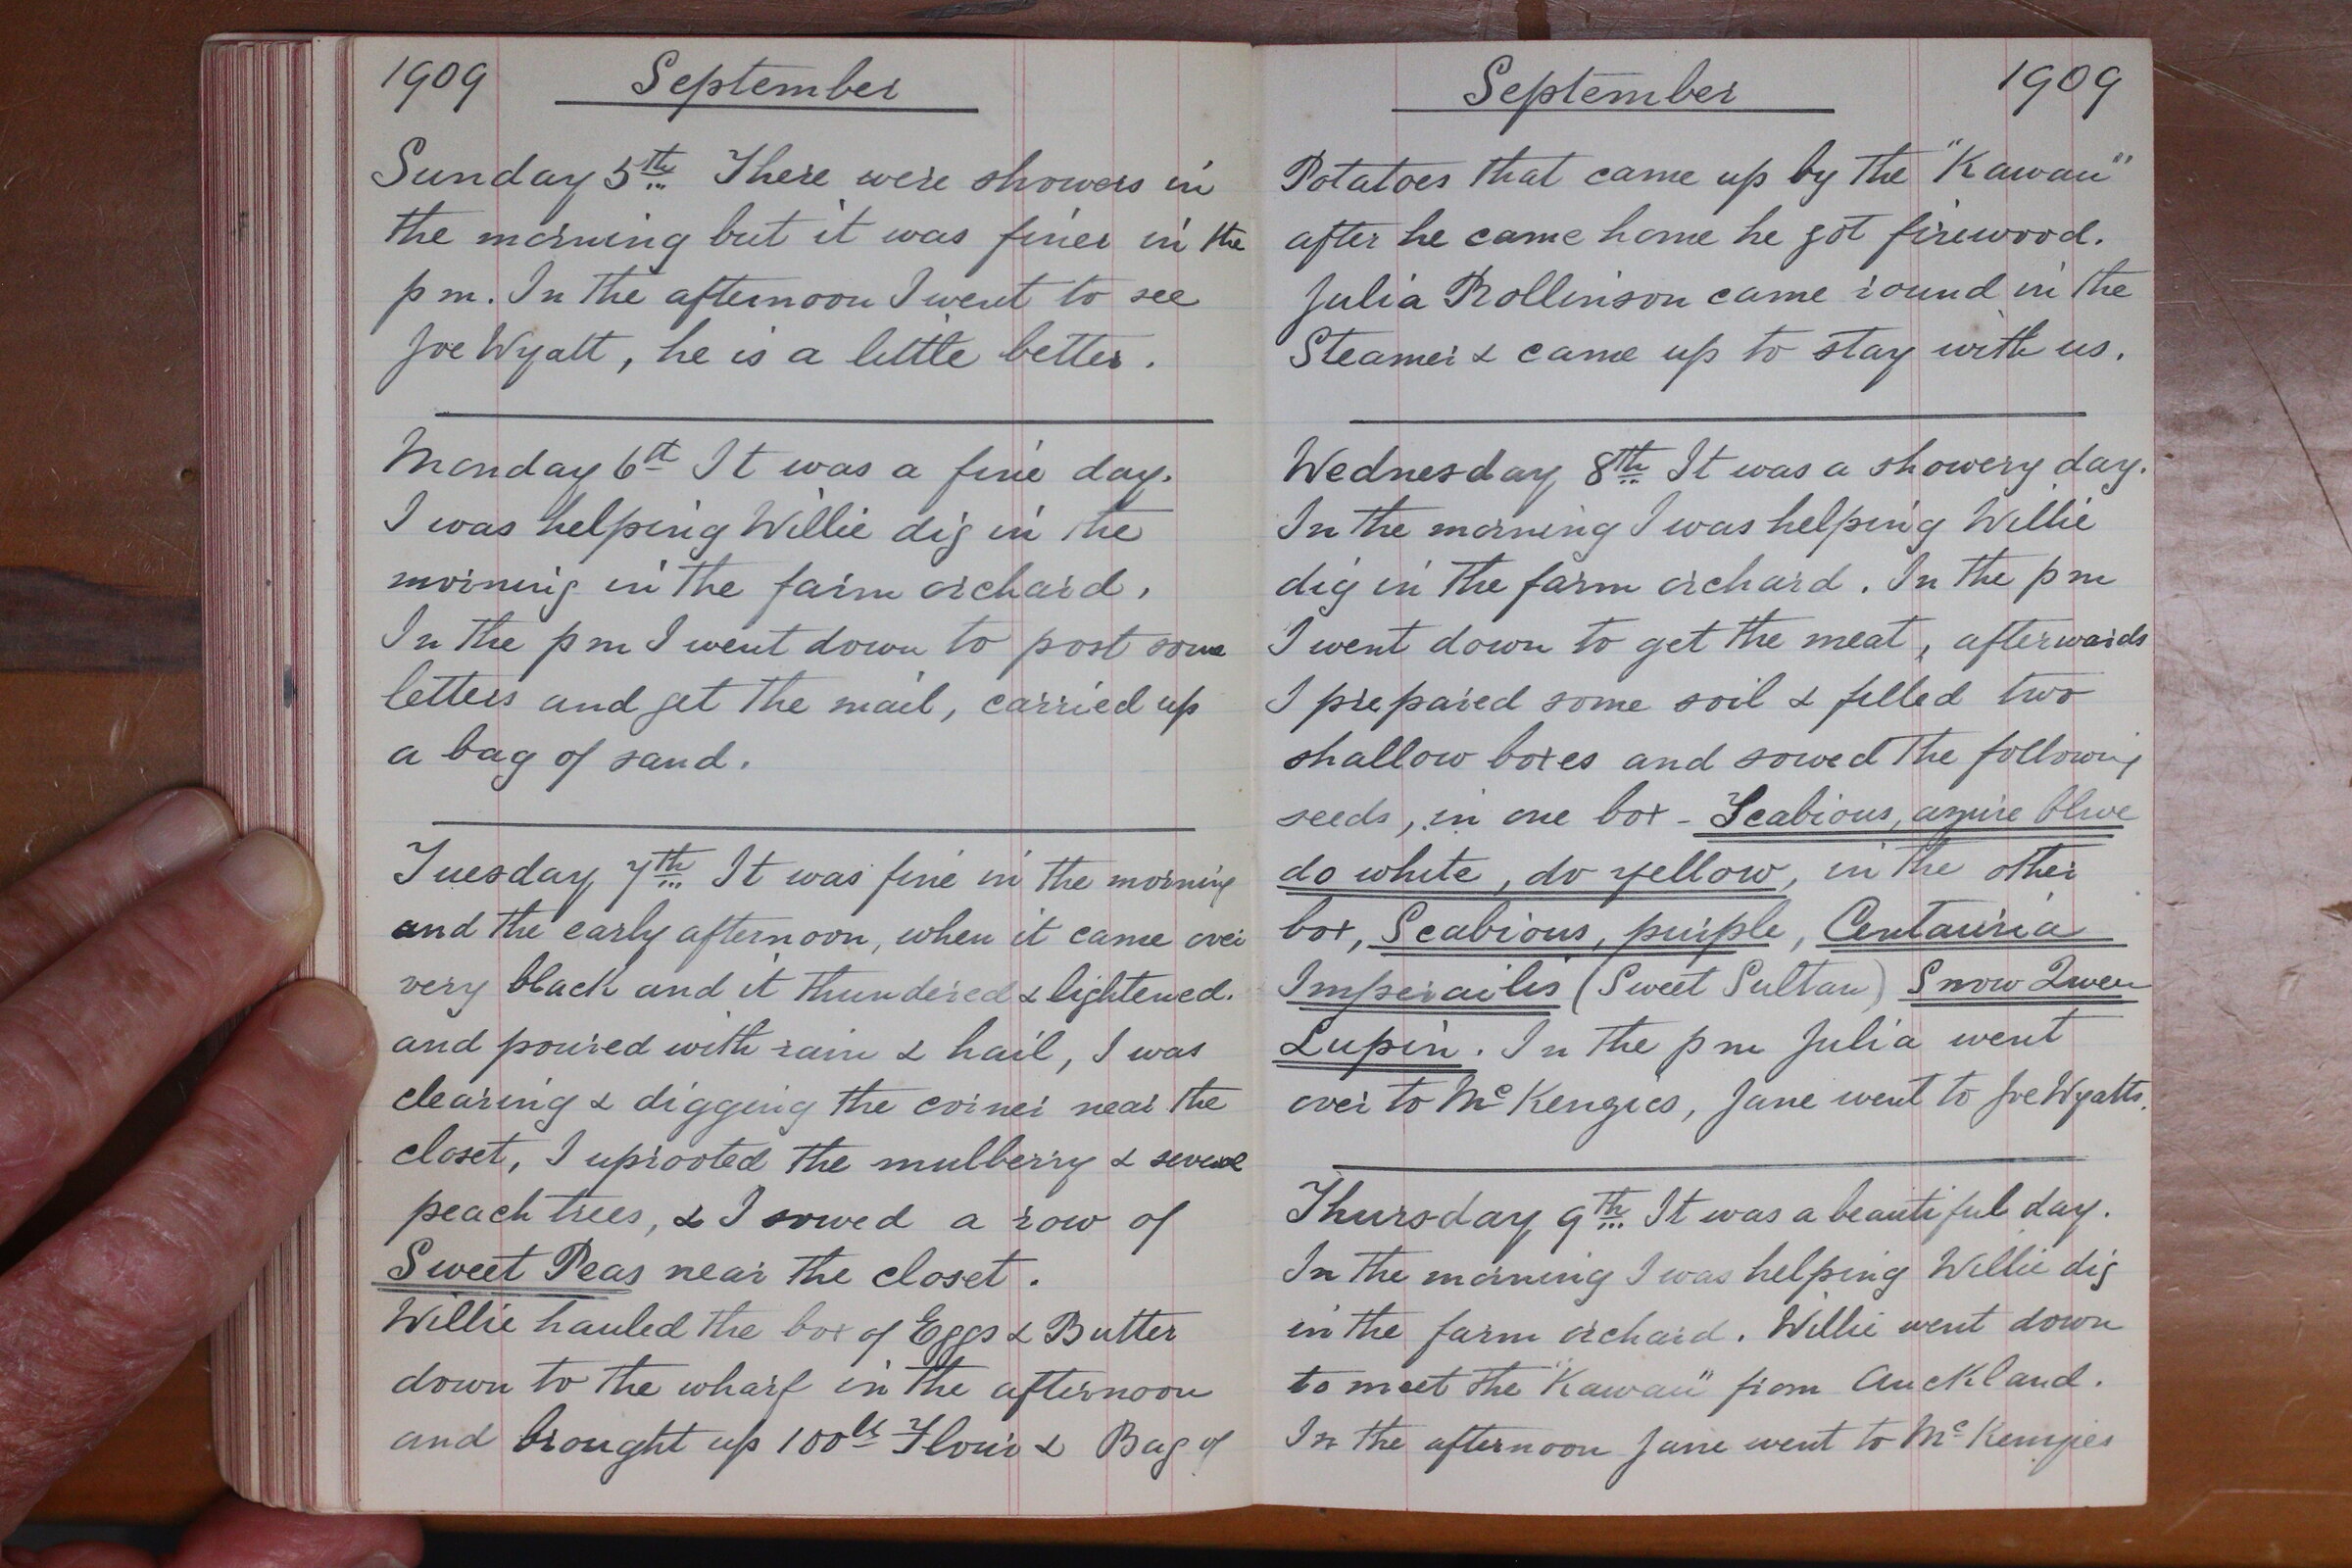 1909 September
Sunday 5th There were showers in
the morning but it was finer in the
pm. In the afternoon I went to see
Joe Wyatt, he is a little better.
Monday 6th It was a fine day.
I was helping Willie dig in the
morning in the farm orchard.
In the pm I went down to post some
letters and get the mail, carried up
a bag of sand.
Tuesday 7th It was fine in the morning
and the early afternoon, when it came over
very black and it thundered & lightened.
and poured with rain & hail, I was
clearing & digging the corner near the
closet, I uprooted the mulberry & several
peach trees, & I sowed a row of
Sweet Peas near the closet.
Willie hauled the box of Eggs & Butter
down to the wharf in the afternoon
and brought up 100lbs Flour & Bag of
September 1909
Potatoes that came up by the "Kawau"
after he came home he got firewood.
Julia Rollinson came round in the
Steamer & came up to stay with us.
Wednesday 8th It was a showery day.
In the morning I was helping Willie
dig in the farm orchard. In the pm
I went down to get the meat, afterwards
I prepared some soil & filled two
shallow boxes and sowed the following
seeds, in one box - Scabious, azure blue
do white, do yellow, in the other
box, Scabious, purple, Centauria
Imperailis (Sweet Sultan) Snow Queen
Lupin. In the pm Julia went
over to McKenzies, Jane went to Joe Wyatts.
Thursday 9th It was a beautiful day.
In the morning I was helping Willie dig
in the farm orchard. Willie went down
to meet the "Kawau" from Auckland.
In the afternoon Jane went to McKenzies